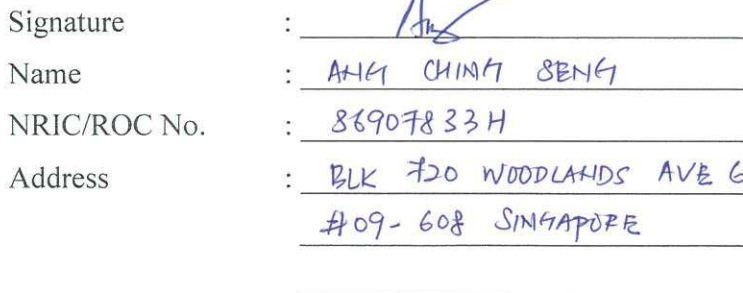 Signature :
Name : ANG CHING SENG
NRIC/ROC No. : S6907833H
Address : BLK 720 WOODLANDS AVE 6
#09-608 SINGAPORE